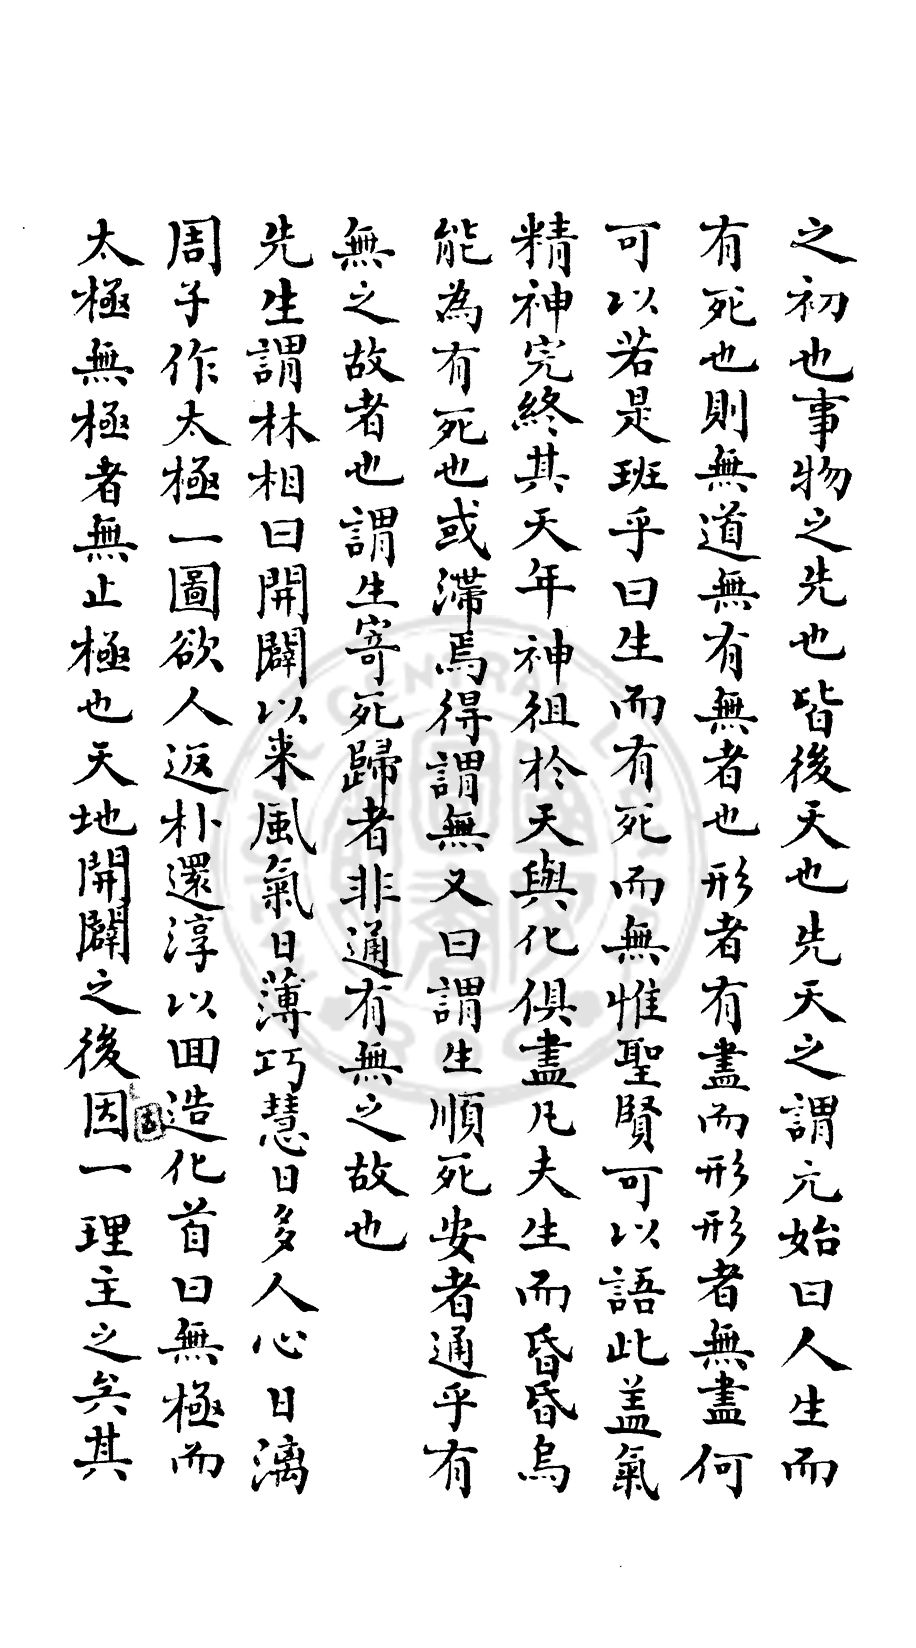 之初也事物之先也皆後天也先天之謂元始曰人生而
有死也則無道無有無者也形者有盡而形形者無盡何
可以若是班乎曰生而有死而無惟聖賢可以語此盖氣
精神完終其天年神徂於天與化俱盡凡夫生而昏昏烏
能為有死也或滯焉得謂無又曰謂生順死安者通乎有
無之故者也謂生寄死歸者非通有無之故也
先生謂林相曰開闢以来風氣日薄巧慧日多人心日漓
周子作太極一圖欲人返朴還淳以回造化首曰無極而
太極無極者無止極也天地開闢之後因一理主之矣其
CENTRAL